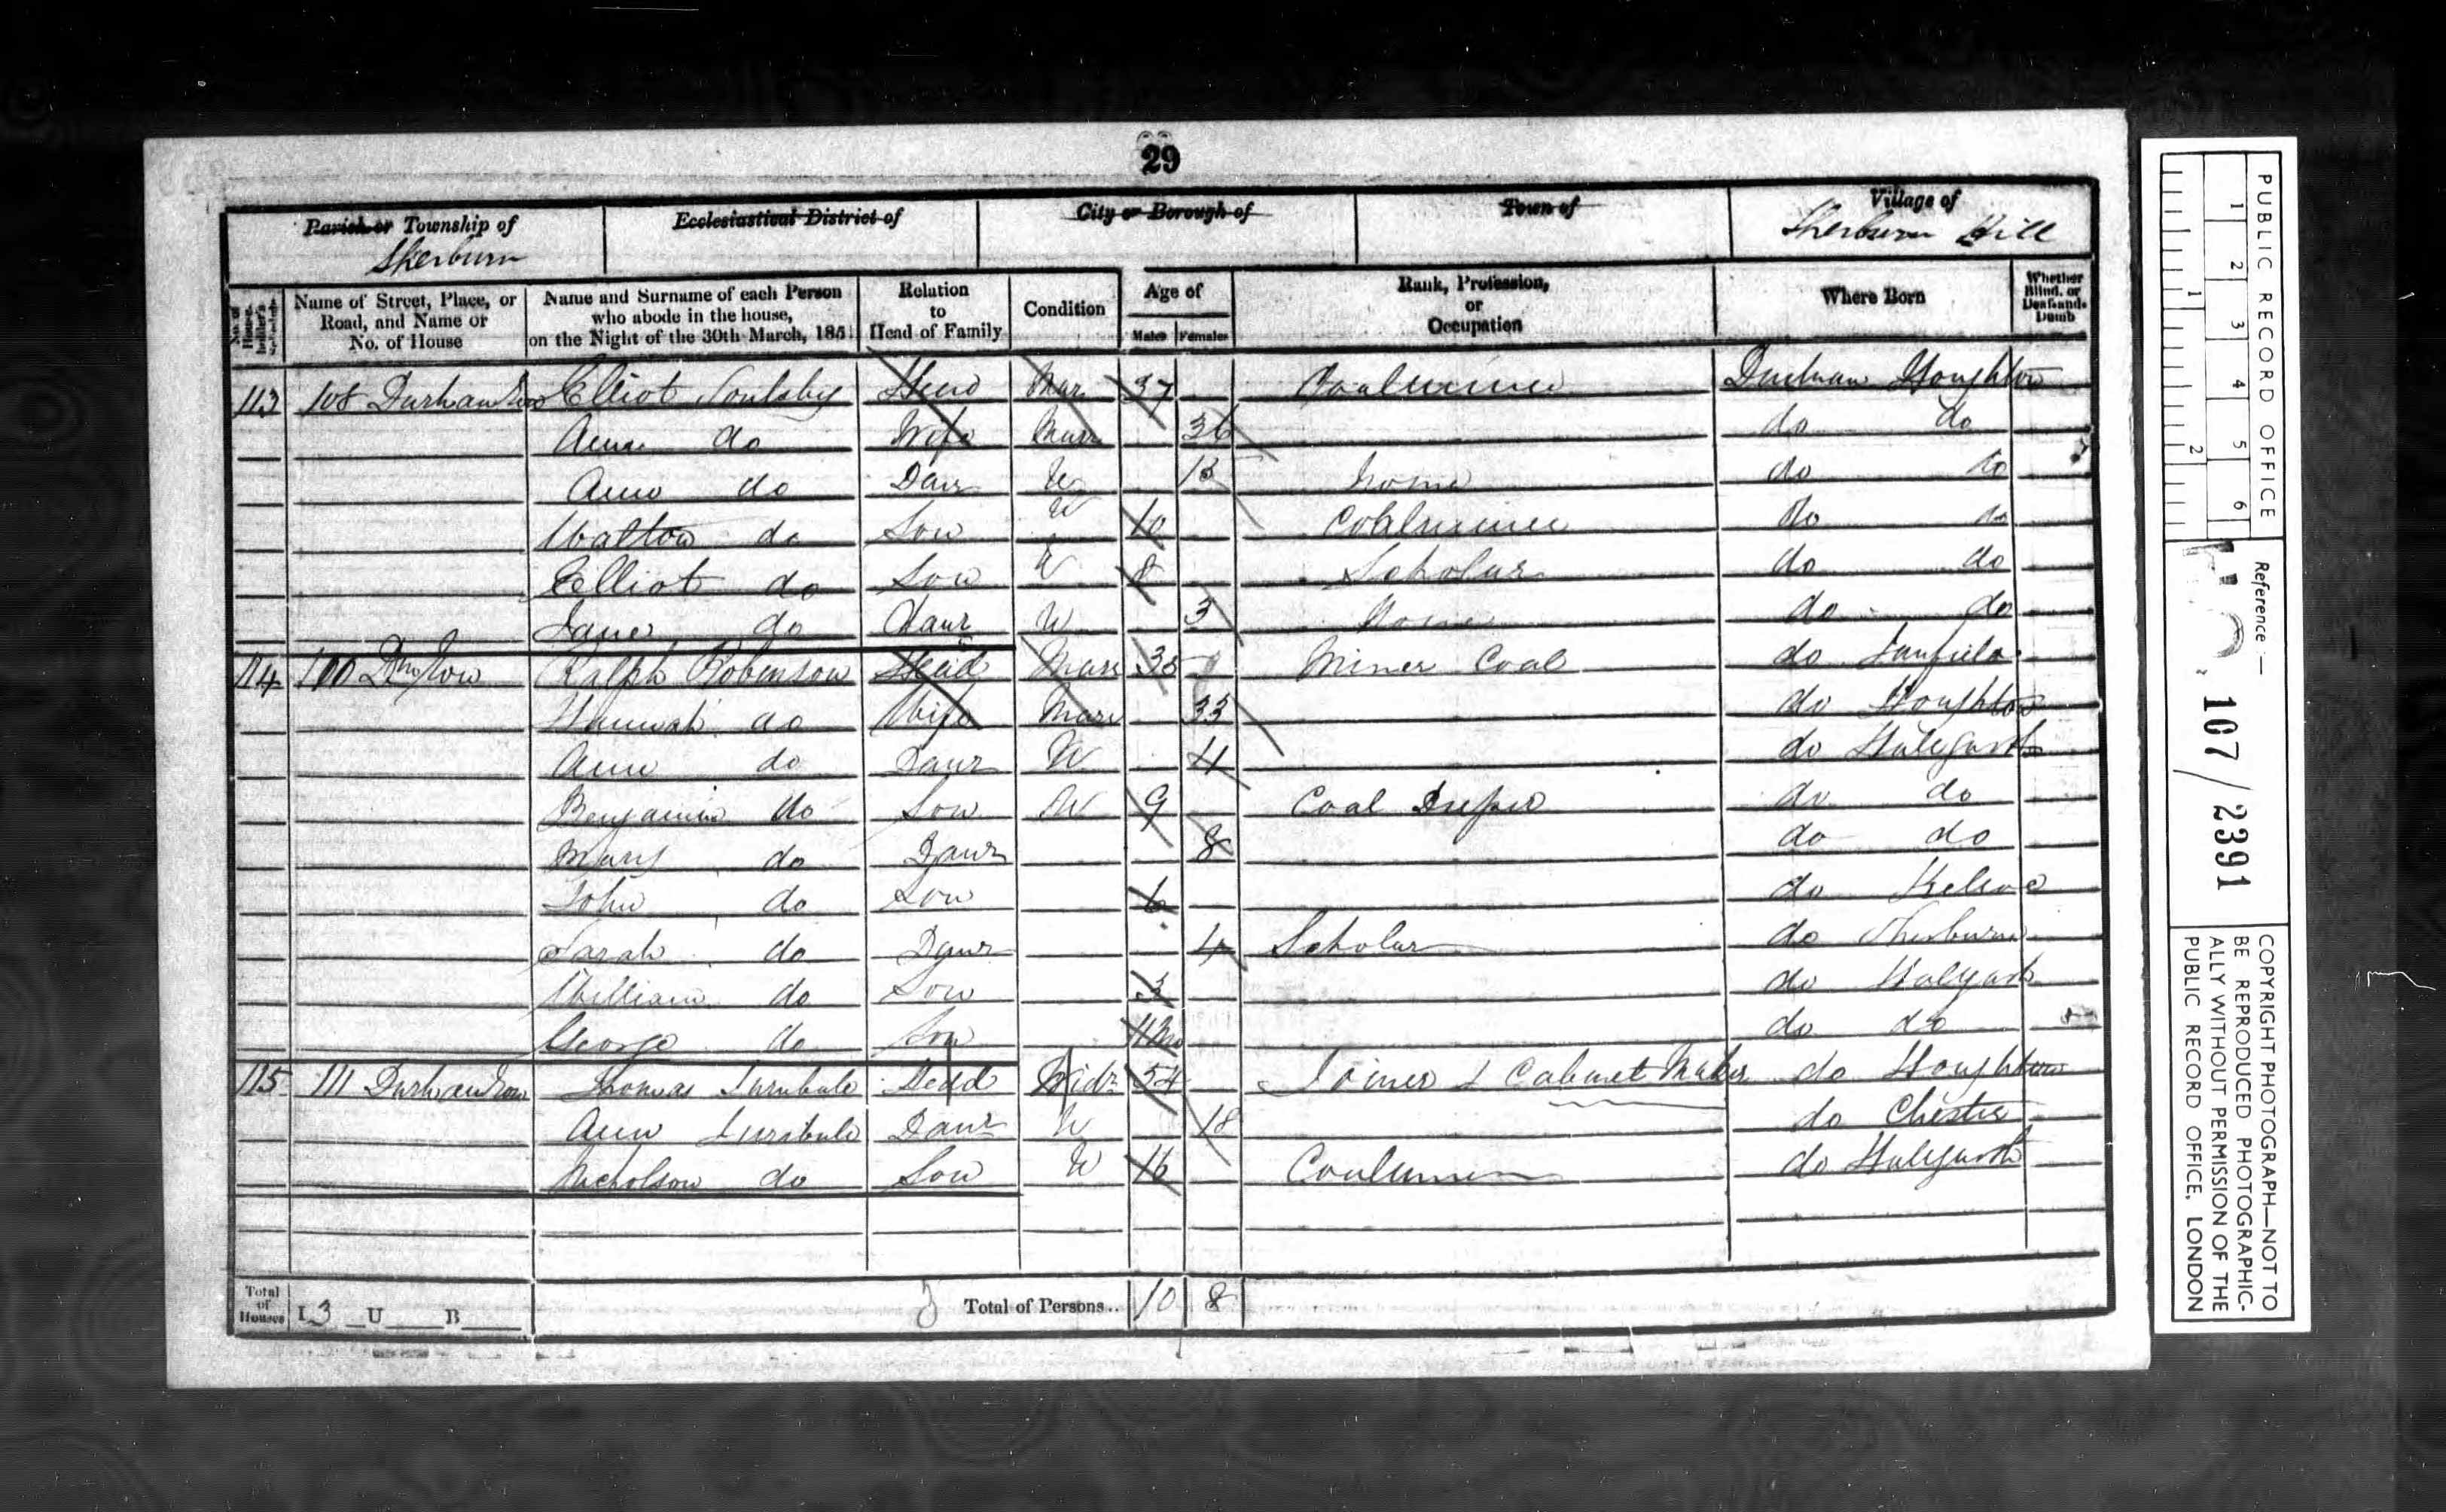 29
Parish or Township of
Sherburn
Ecclesiastical District of
City or Borough of
Town of
Village of
Sherburn Hill
No. of House-holder's Schedule
Name of Street, Place, or Road, and Name or No. of House
Name and Surname of each Person who abode in the house, on the Night of the 30th March, 1851
Relation to Head of Family
Condition
Age of
Males Females
Rank, Profession, or Occupation
Where Born
Whether Blind, or Deaf-and-Dumb
113 108 Durham Row Elliot Soulsby Head Mar 37 Coalminer Durham Houghton
Ann do Wife Marr 36 do do
Ann do Daur U 13 home do do
Walton do Son U 10 Coalminer do do
Elliot do Son U 8 Scholar do do
Jane do Daur U 3 Home do do
114 110 Dm Row Ralph Robinson Head Marr 35 Miner Coal do Tanfield
Hannah do Wife Marr 33 do Houghton
Ann do Daur U 11 do Halegarth
Benjamin do Son U 9 Coal do do
Mary do Daur 8 do do
John do Son 6 do Kelloe
Sarah do Daur 4 Scholar do Sherburn
William do Son 3 do Halgarth
George do Son 4 Mo do do
115 111 Durham Row Thomas Turnbule Head Widr 54 Joiner & Cabinet Maker do Houghton
Ann Turnbule Daur U 18 do Chester
Nicholson do Son U 16 Coalminer do Halegarth
Total of Houses I 3 U B
Total of Persons.. 10 8
PUBLIC RECORD OFFICE
1 2 3 4 5 6
1 2
Reference:—
107/2391
COPYRIGHT PHOTOGRAPH—NOT TO BE REPRODUCED PHOTOGRAPHIC-ALLY WITHOUT PERMISSION OF THE PUBLIC RECORD OFFICE, LONDON